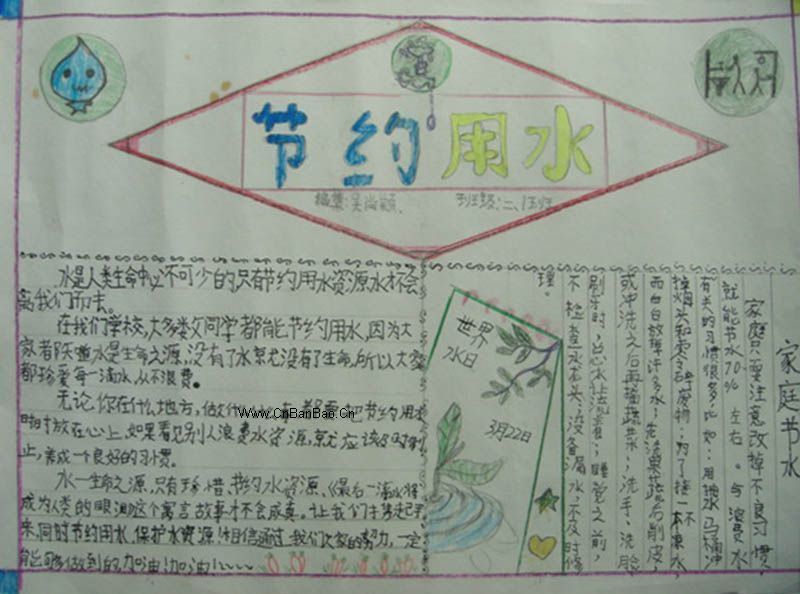 节约用水
编集:吴尚颖
班级:二、1班
水是人类生命中必不可少的只有节约用水资源水才不会
离我们而去。
在我们学校,大多类文同学都能节约用水,因为大
家者陈噔水是生命之源,没有了水京尤没有了生命,所以大家
都珍爱每一滴水,从不浪费。
无论你在什么地方,做什
把节约用水
时时放在心上,如果看见别人浪费水资源,京尤应该及时制
止,养成一个良好的习惯。
水一生命之源,只有珍惜、节约水资源,《最后一滴水将
成为人类的眼泪》这个寓言故事才不会成真。让我们
来,同时节约用水,保护水资源!相信通过我们大家的努力,一定
能够做到的,加油!加油!
www.CnBanBao.Cn
世界
水日
3月22日
家庭节水
家庭只要注意改掉不良习惯,
就能节水70%左右。与浪费水
有关的习惯很多,比如:用抽水马桶冲
掉烟头和零碎废物;为了接一杯
水,
而白白放掉许多水;先洗果蔬后削皮,
或冲洗之后再摘蔬菜;洗手、洗脸、
刷牙时,总水
着;睡觉之前,
不检查水龙头;设备漏水,不及时修
理。